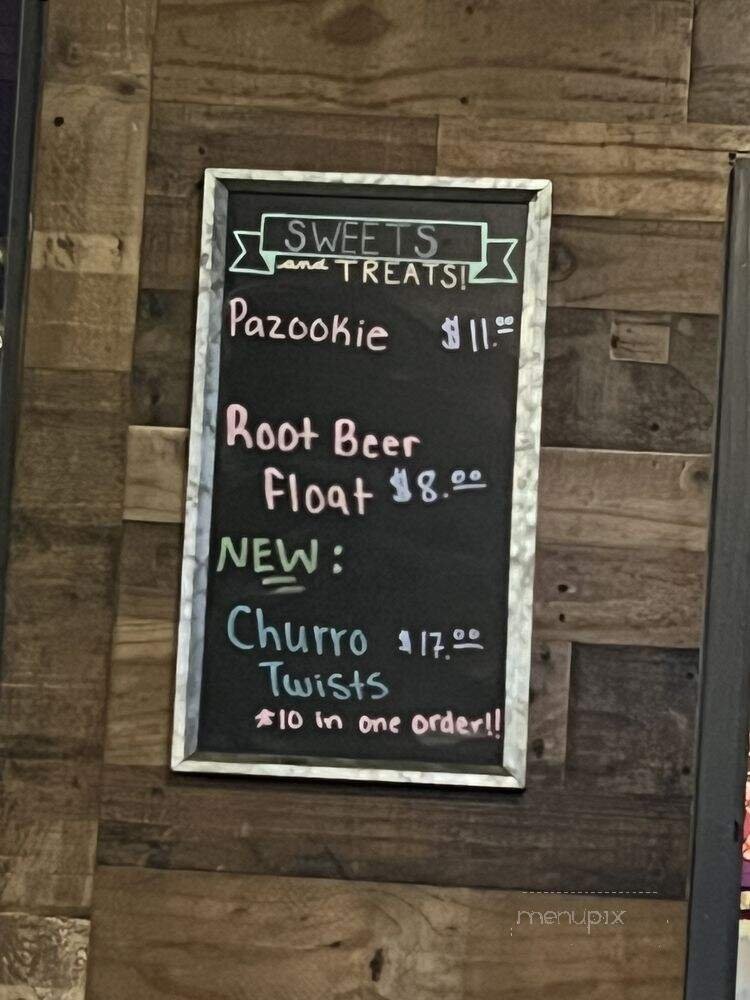 SWEETS
and TREATS!
Pazookie $11.00
Root Beer
Float $8.00
NEW:
Churro $17.00
Twists
*10 in one order!!
menupix